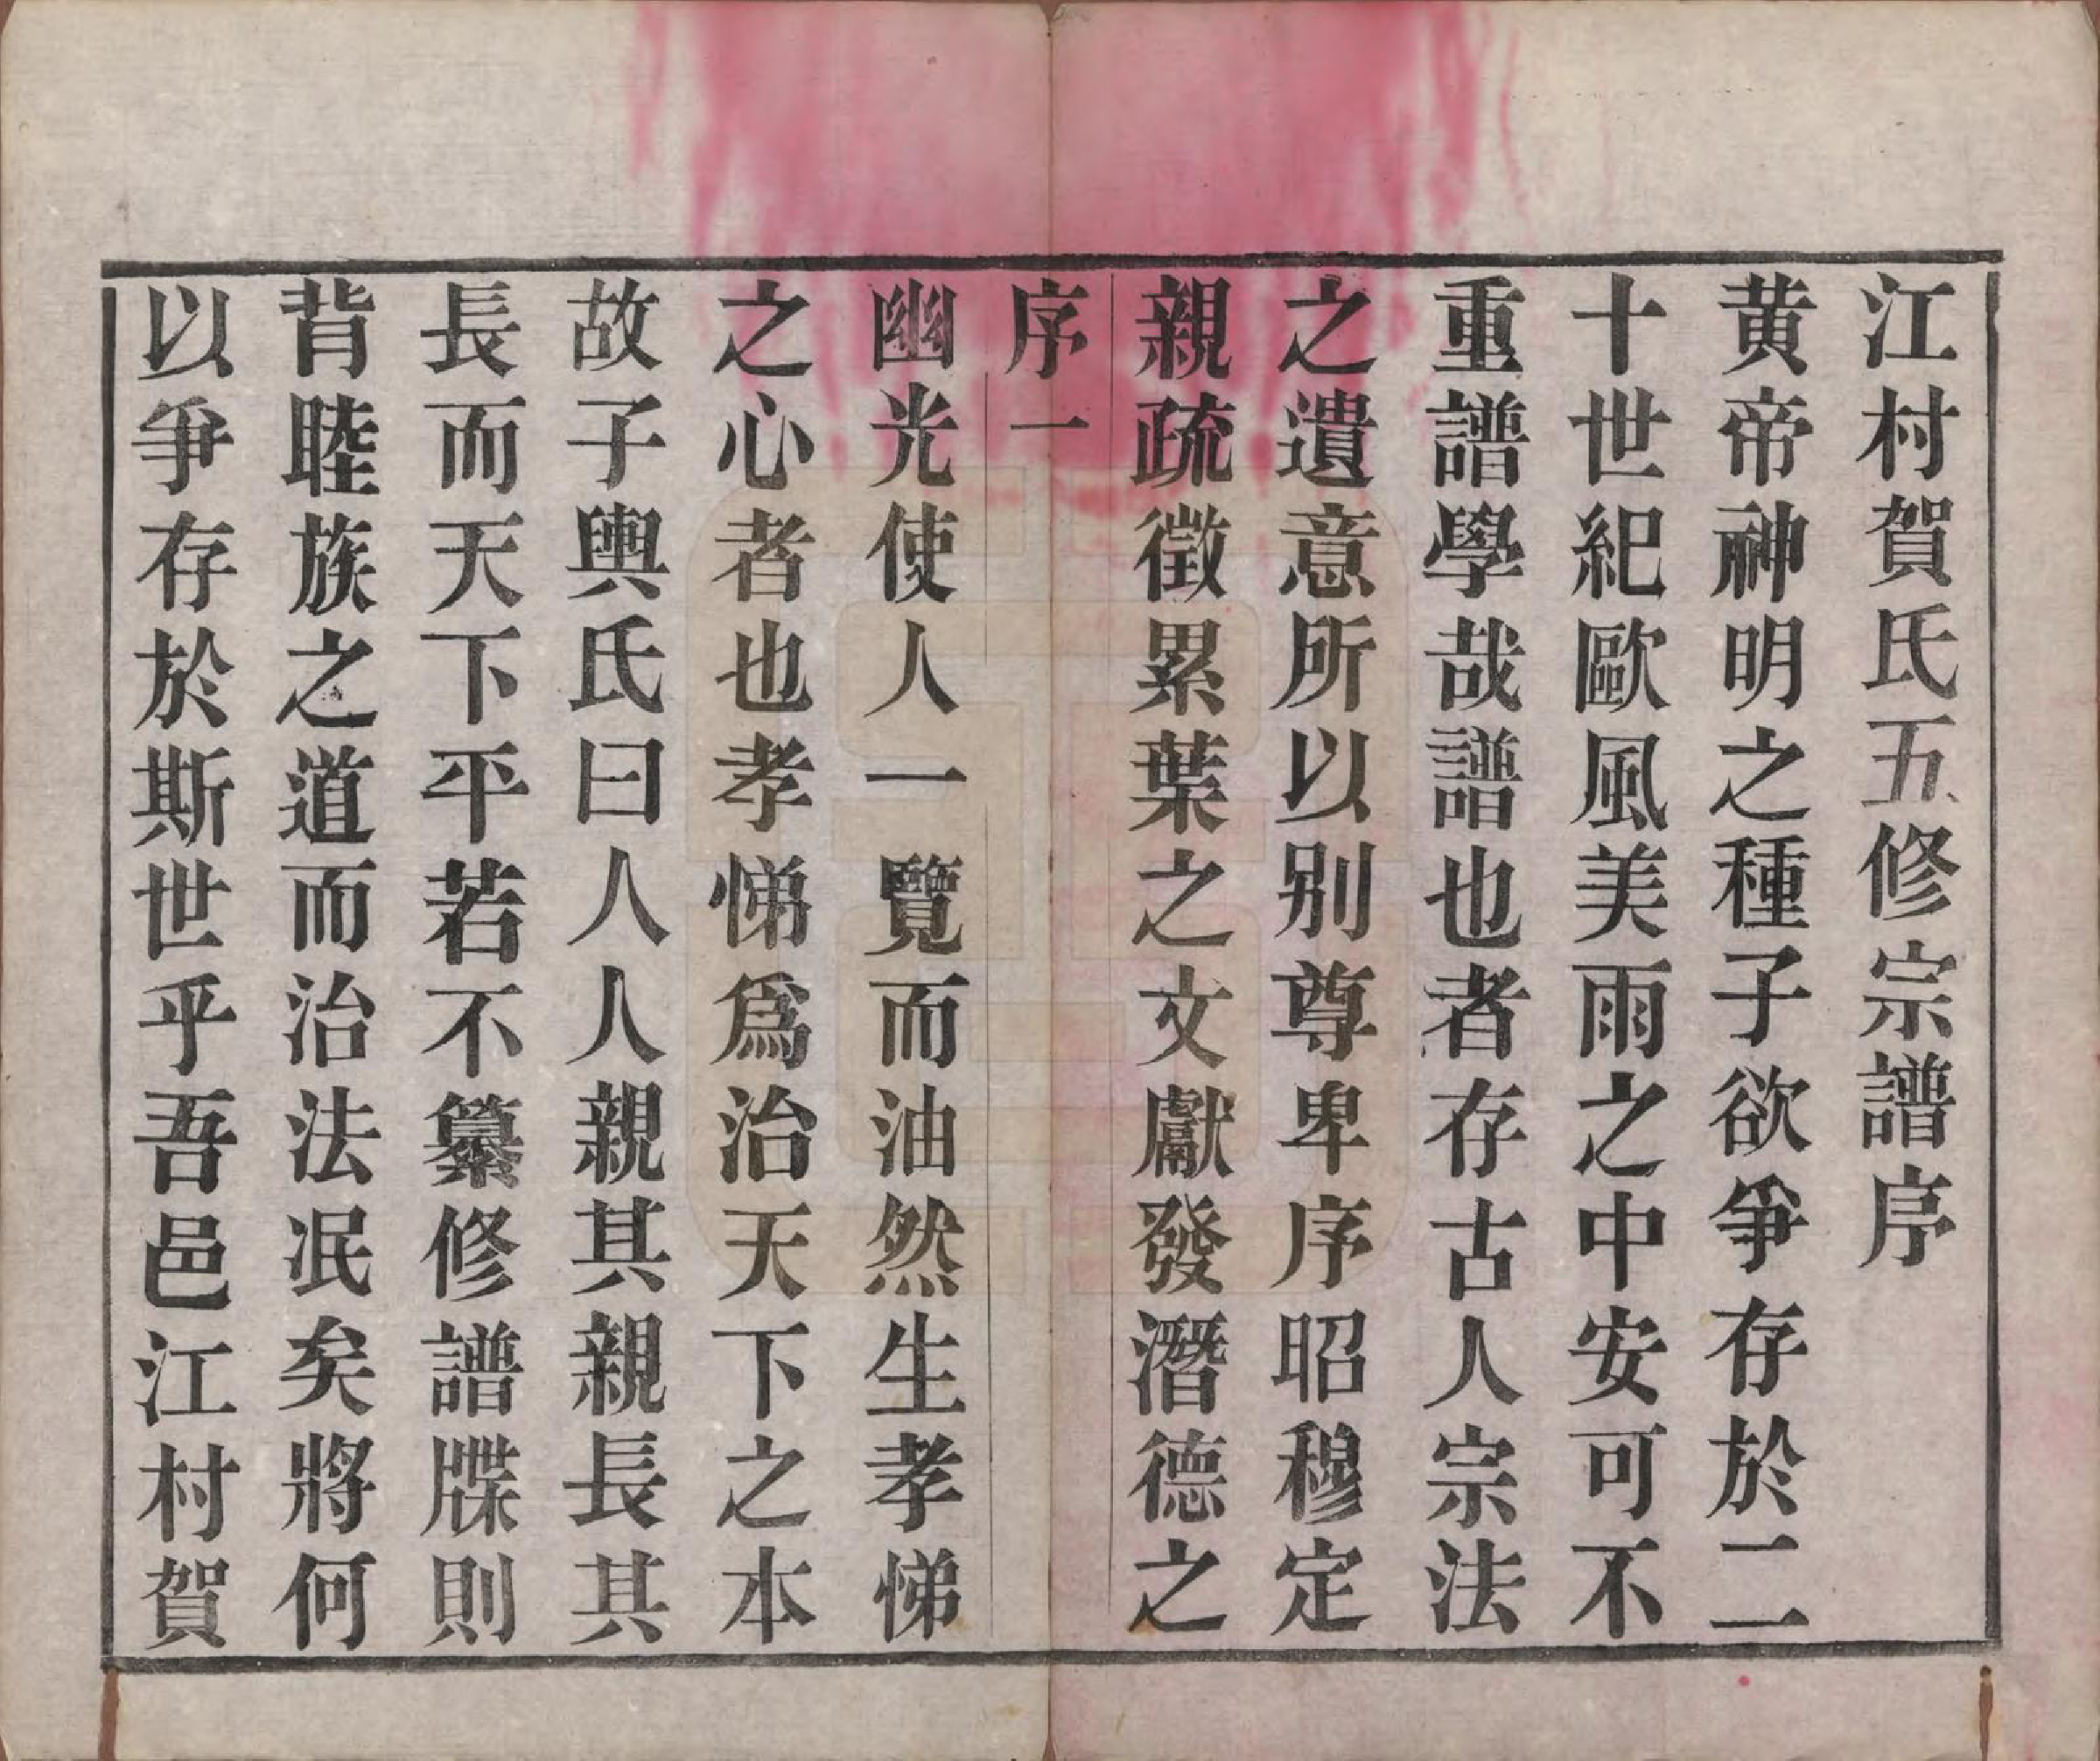 江村賀氏五修宗譜序
黄帝神明之種子欲爭存於二
十世紀歐風美雨之中安可不
重譜學哉譜也者存古人宗法
之遺意所以别尊卑序昭穆定
親疏徵累葉之文獻發潛德之
序一
幽光使人一覽而油然生孝悌
之心者也孝悌爲治天下之本
故子輿氏曰人人親其親長其
長而天下平若不纂修譜牒則
背睦族之道而治法泯矣將何
以爭存於斯世乎吾邑江村賀